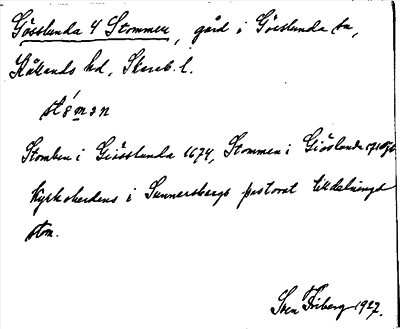 Gösslunda 4 Stommen, gård i Gösslunda sn,
Kållands hd, Skarab. l.
Stomben i Giösslunda 1674, Stommen i Giöslunda
Kyrkoherdens i Sunnersbergs pastorat tildelningt
stom.
Sven Friberg 1927.